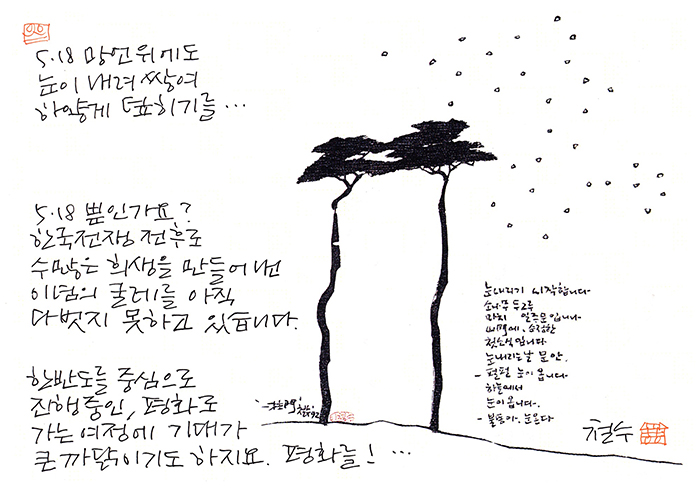 5·18 망언 위에도
눈이 내려 쌓여
하얗게 덮히기를 …
5·18 뿐인가요?
한국전쟁 전후로
수많은 희생을 만들어 낸
이념의 굴레를 아직
다 벗지 못하고 있습니다.
한반도를 중심으로
진행중인, 평화로
가는 여정에 기대가
큰 까닭이기도 하지요. 평화를! …
눈 내리기 시작합니다.
소나무 두 그루
마치 일주문입니다
새벽에, 순정한
첫 소식입니다
눈 내리는 날 문안.
- 펄펄 눈이 옵니다
하늘에서
눈이 옵니다.
철수